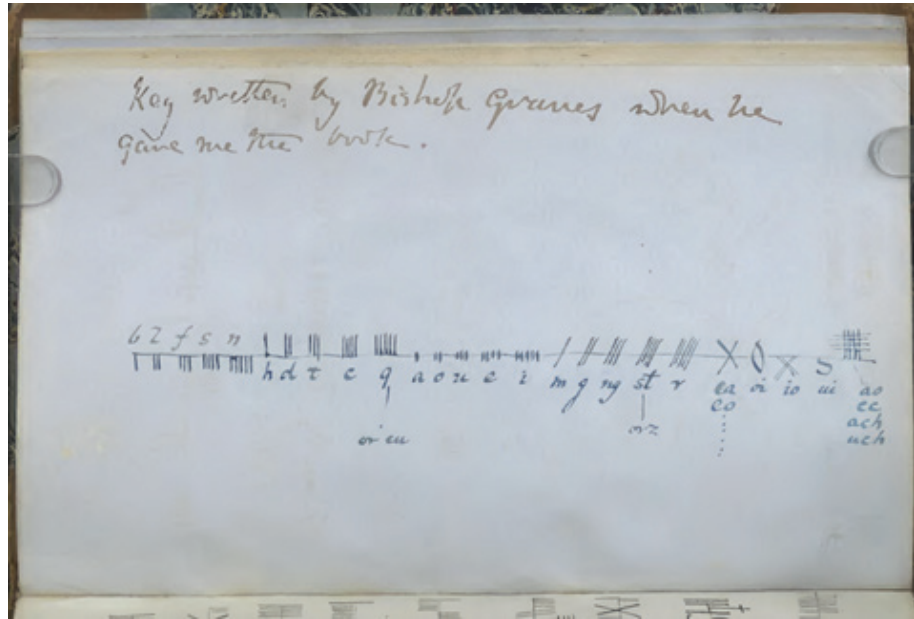 Key written by Bishop Graves when he
gave me the book.
b l f s n
h d t c q a o u e i m g ng st r ea oi io ui ao
eo
ach
or cu or z uch